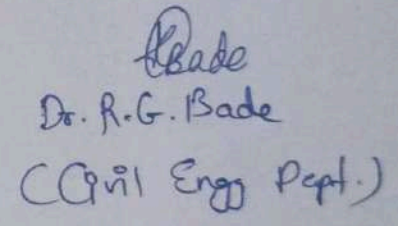 Bade
Dr. R.G. Bade
(Civil Engg Dept.)